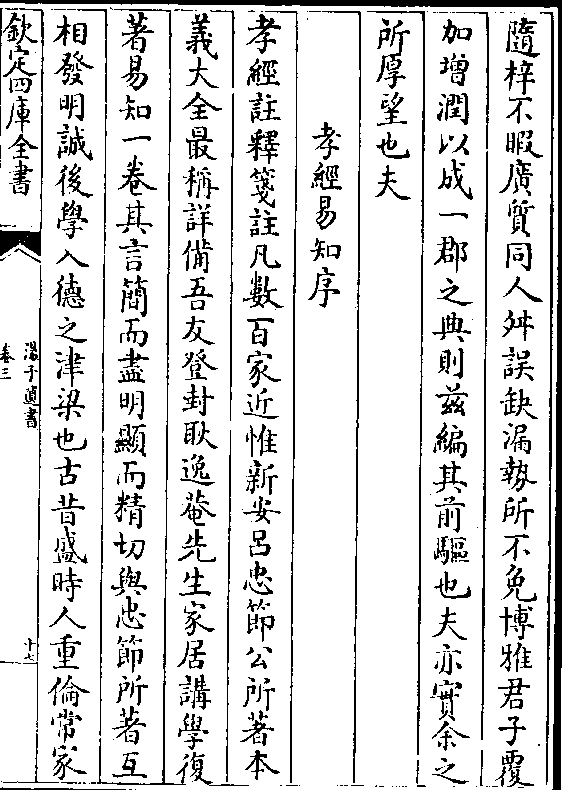 隨梓不暇廣質同人舛誤缺漏勢所不免博雅君子覆
加增潤以成一郡之典則兹編其前驅也夫亦實余之
所厚望也夫
孝經易知序
孝經註釋箋註凡數百家近惟新安呂忠節公所著本
義大全最稱詳備吾友登封耿逸菴先生家居講學復
著易知一卷其言簡而盡明顯而精切與忠節所著互
相發明誠後學入德之津梁也古昔盛時人重倫常家
欽定四庫全書
湯子遺書
卷三
十七